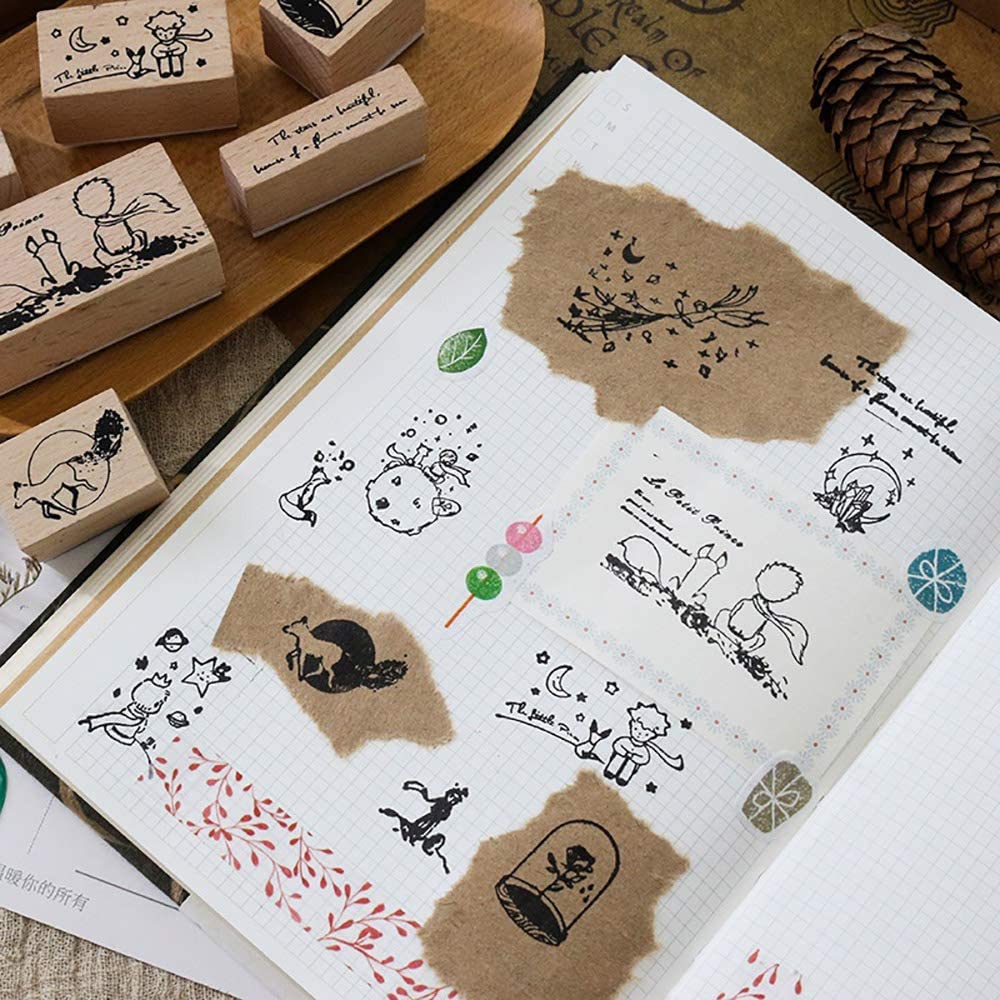 Realm
Of
The little Prin
The stars are beautiful,
because of a flower cannot be seen
Prince
S
M
T
The stars are beautiful,
because of a flower cannot be seen
Le Petit Prince
The little Prin
暖你的所有